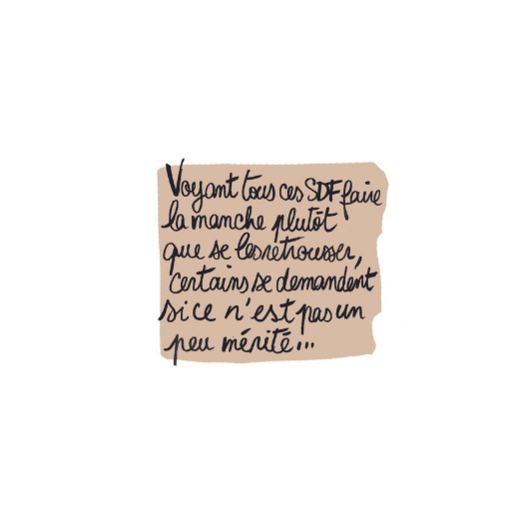 Voyant tous ces SDF faire
la manche plutôt
que se les retrousser,
certains se demandent
si ce n'est pas un
peu mérité...